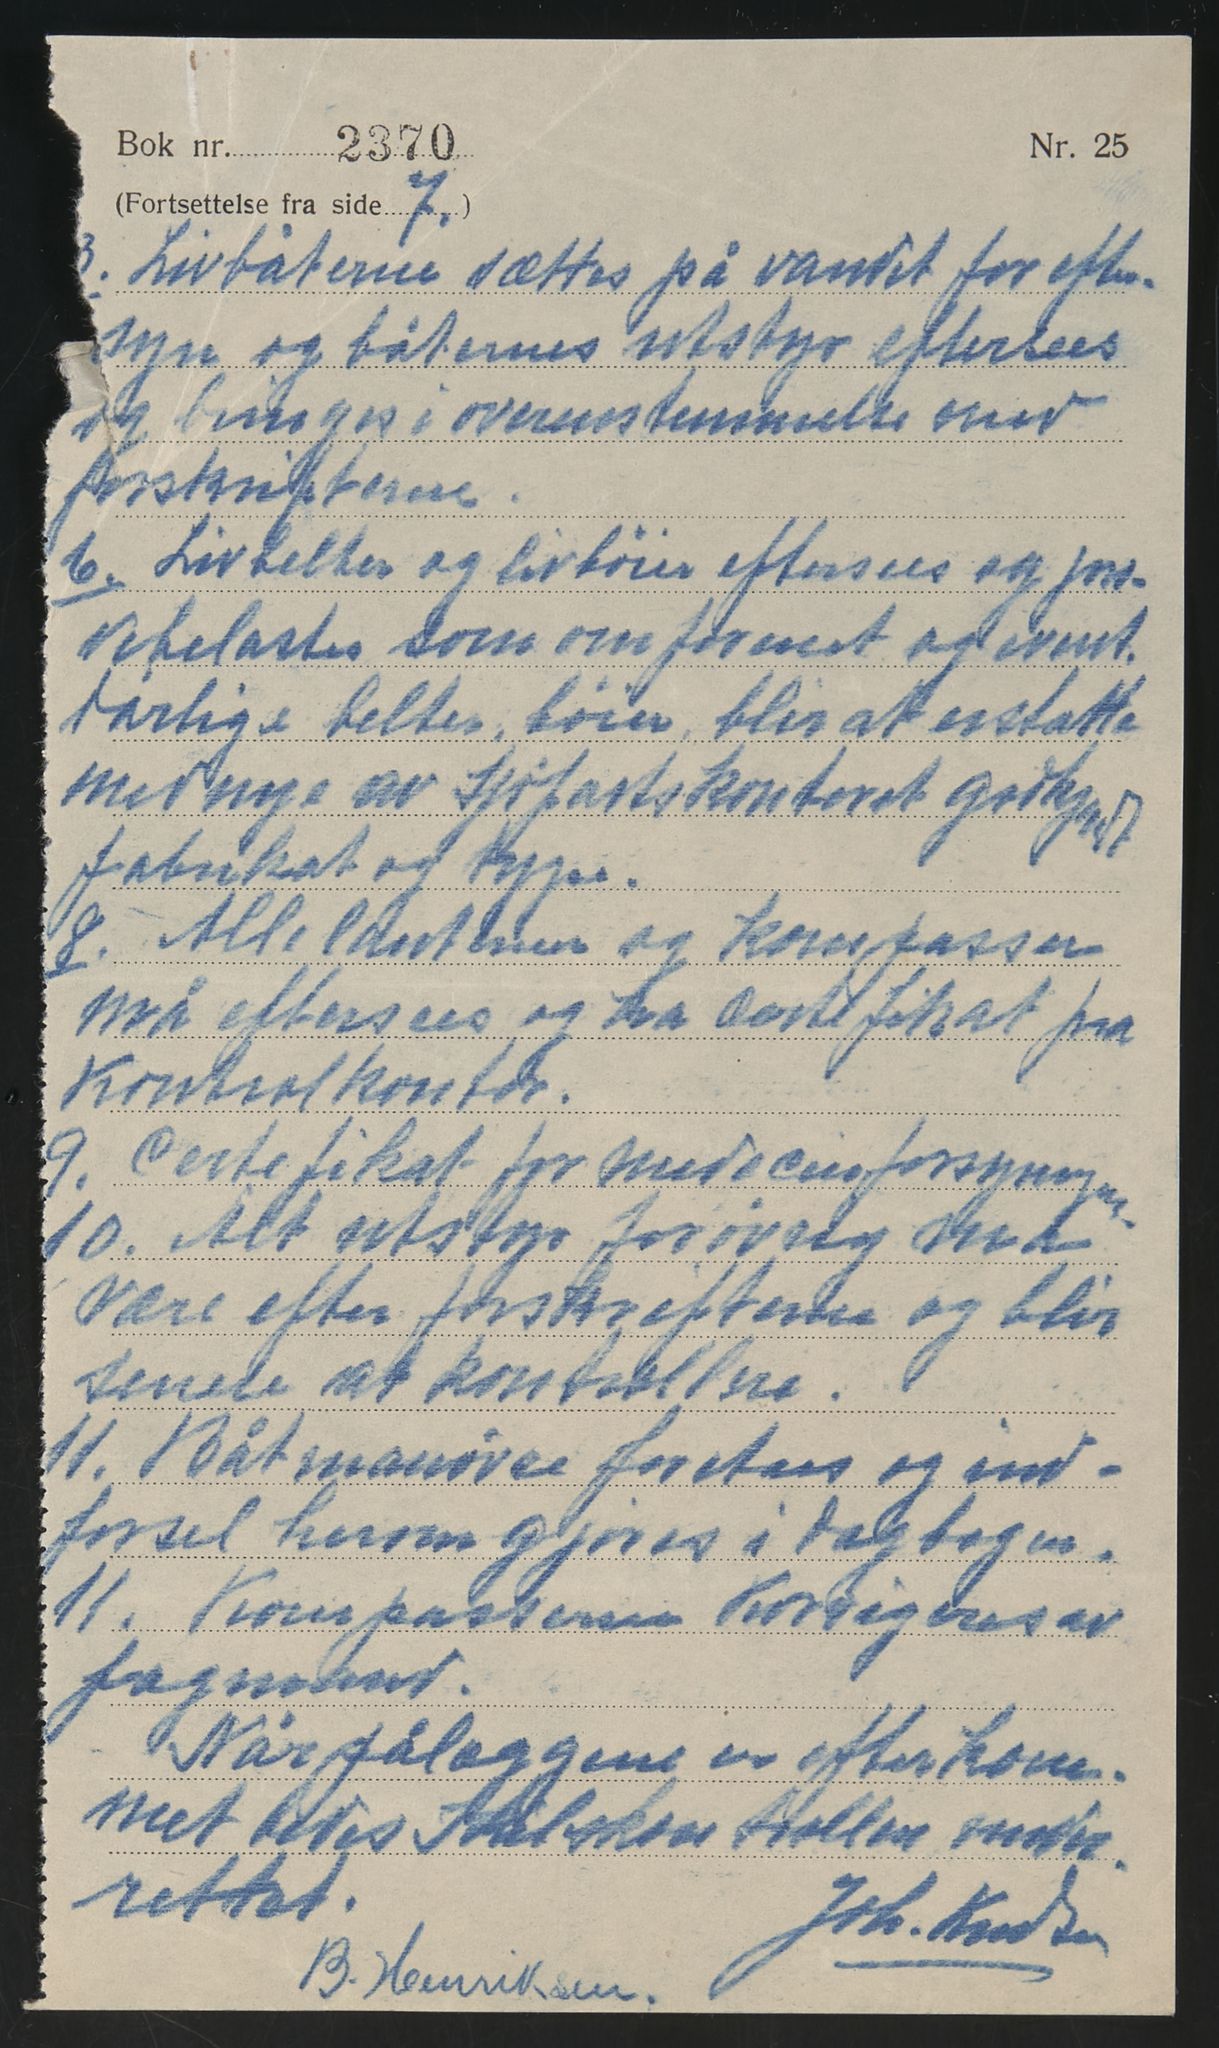 Bok nr. 2370 Nr. 25
(Fortsettelse fra side 7.)
3. Livbåterne sættes på vandet for efter-
syn og båternes utstyr eftersees
og bringes i overenstemmelse med
forskrifterne.
6. Livbelter og livbøier eftersees og prø-
vebelastes som om fornuet og event.
dårlige belter, bøier, blir at erstatte
med nye av Sjøfartskontoret godkjendt
fabrikat og type.
8. Alle lanterner og kompasser
må eftersees og ha certefikat fra
Kontrolkontor.
9. Certefikat for medecinforsyningen.
10. Alt utstyr forøvrig må
være efter forskrifterne og blir
senere at kontrollere.
11. Båtmanøvre foretaes og ind-
førsel herom gjøres i dagbogen.
11. Kompasserne korrigeres av
fagmand.
Når påleggene er efterkom-
met bedes Skibskontrollen under-
rettet.
Joh. Knudsen
B. Henriksen.